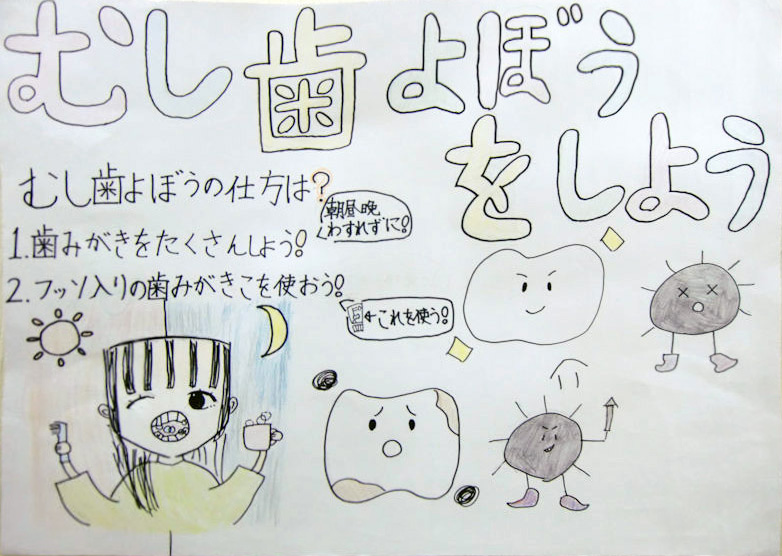 むし歯よぼう
をしよう
むし歯よぼうの仕方は?
朝昼晩
わすれずに!
1.歯みがきをたくさんしよう!
2.フッソ入りの歯みがきこを使おう!
←これを使う!